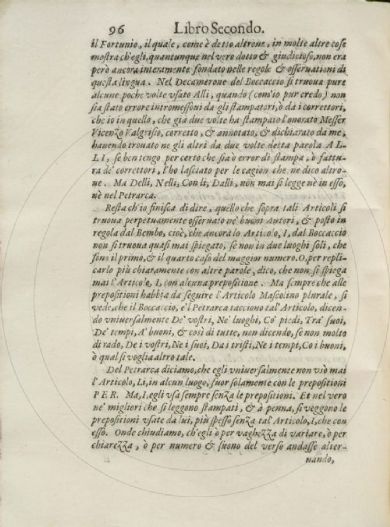 96 Libro Secondo.
il Fortunio, il quale, come è detto altroue, in molte altre cose
mostra ch'egli, quantunque nel vero dotto & giudicioso, non era
però ancora interamente fondato nelle regole & osseruationi di
questa lingua. Nel Decamerone del Boccaccio si truoua pure
alcune poche volte vsato Alli, quando (com'io pur credo) non
sia stato errore intromessoui da gli stampatori, ò da i correttori,
che io in quello, che già due volte ha stampato l'onorato Messer
Vicenzo Valgrisio, corretto, & annotato, & dichiarato da me,
hauendo trouato ne gli altri da due volte detta parola AL-
LI, se ben tengo per certo che sia ò error di stampa, ò fattu-
ra de' correttori, l'ho lasciato per le cagion che ne dico altro-
ne. Ma Delli, Nelli, Con li, Dalli, non mai si legge nè in esso,
nè nel Petrarca.
Resta ch'io finisca di dire, quello che sopra tali Articoli si
truoua perpetuamente osseruato ne' buoni Autori, & posto in
regola dal Bembo, cioè, che ancora lo Articolo, I, dal Boccaccio
non si truoua quasi mai spiegato, se non in due luoghi soli, che
sono il primo, & il quarto caso del maggior numero. O, per repli-
carlo più chiaramente con altre parole, dico, che non si spiega
mai l'Articolo, I, con alcuna prepositione. Ma sempre che alle
prepositioni habbia da seguire l'Articolo Mascolino plurale, si
vede, che il Boccaccio, e'l Petrarca tacciono tal'Articolo, dicen-
do vniuersalmente De' vostri, Ne' luoghi, Co' piedi, Tra' suoi,
De' tempi, A' buoni, & così di tutte, non dicendo, se non molto
di rado, De i vostri, Ne i suoi, Da i tristi, Ne i tempi, Co i buoni,
ò qual si voglia altro tale.
Del Petrarca diciamo, che egli vniuersalmente non vsò mai
l'Articolo, Li, in alcun luogo, fuor solamente con le prepositioni
PER. Ma, I, egli vsa sempre senza le prepositioni. Et nel vero
ne' migliori che si leggono stampati, & à penna, si veggono le
prepositioni vsate da lui, più spesso senza tal'Articolo, I, che con
esso. Onde chiudiamo, ch'egli ò per vaghezza di variare, ò per
chiarezza, ò per numero & suono del verso andasse alter-
nando,